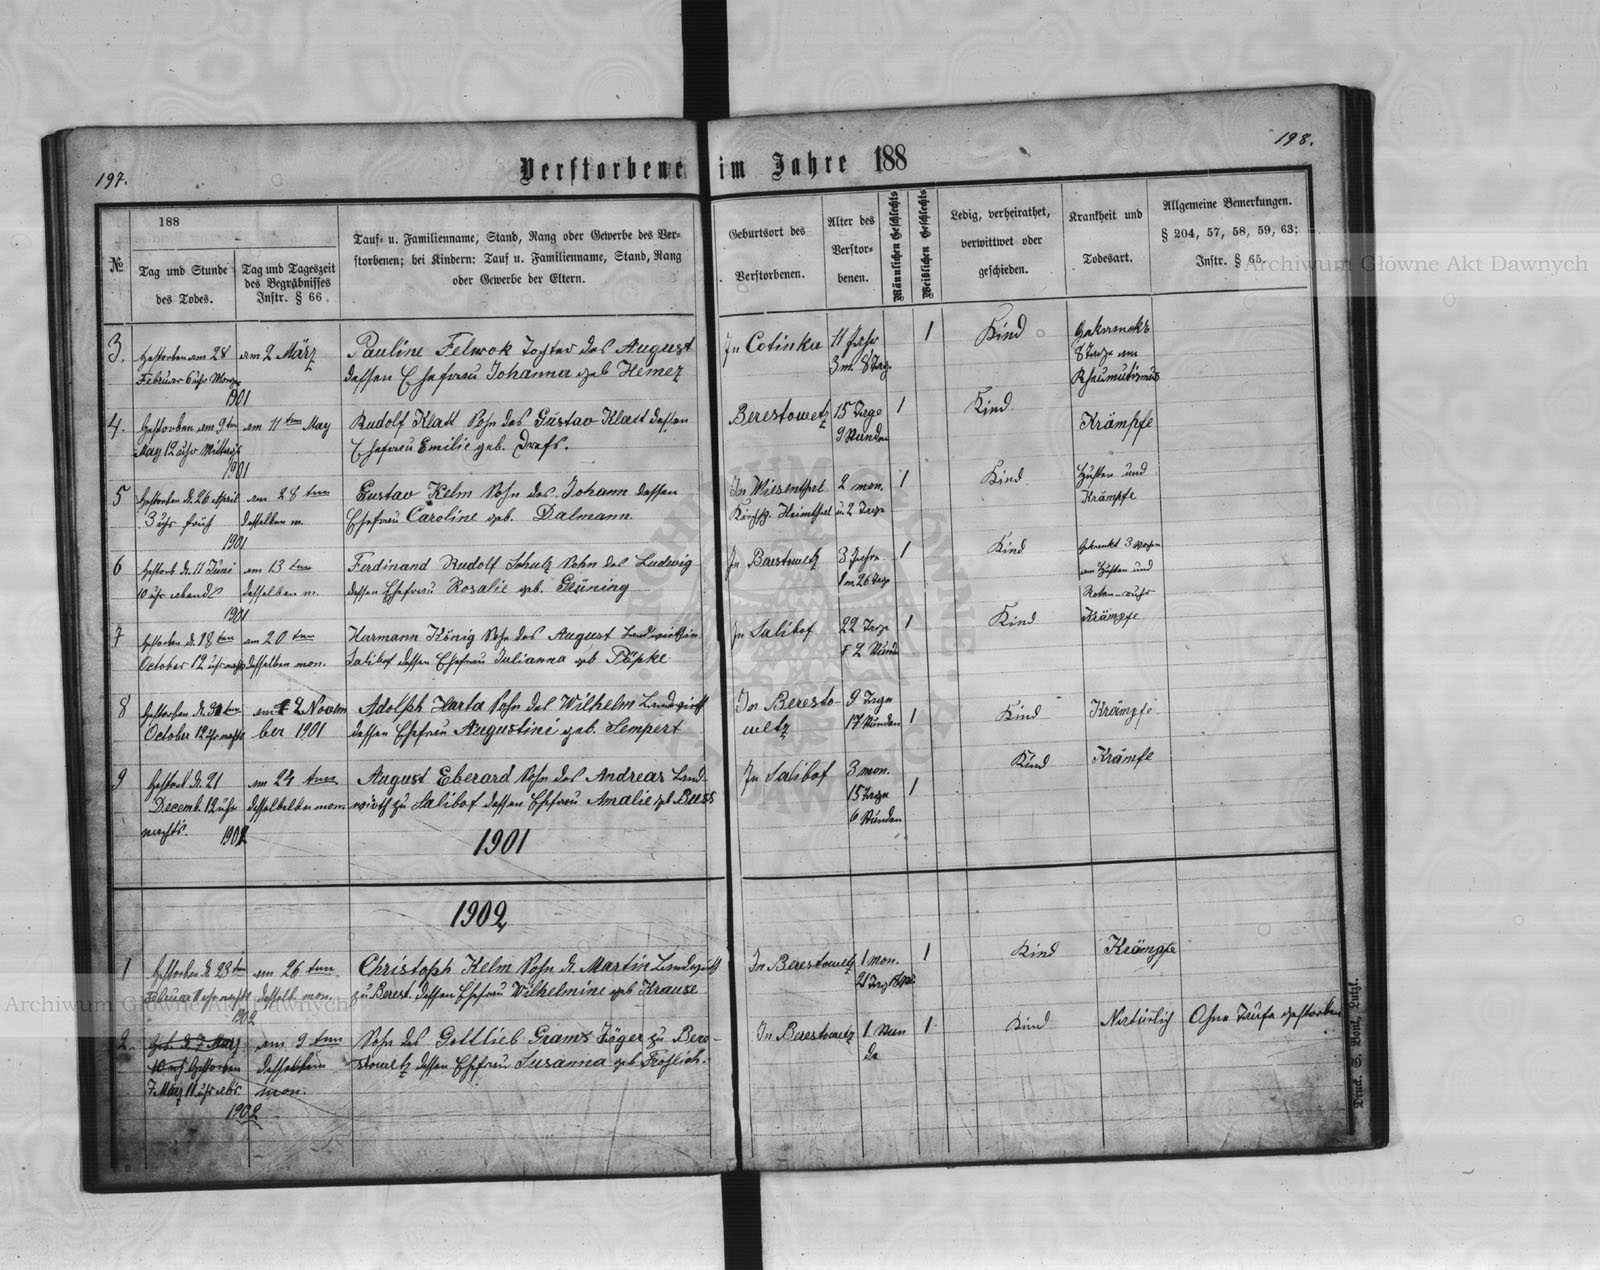 197.
198.
Verstorbene im Jahre 188
№
188
Tag und Stunde
des Todes.
Tag und Tageszeit
des Begräbnisses
Instr. § 66.
Tauf- u. Familienname, Stand, Rang oder Gewerbe des Ver-
storbenen; bei Kindern: Tauf u. Familienname, Stand, Rang
oder Gewerbe der Eltern.
Geburtsort des
Verstorbenen.
Alter des
Verstor-
benen.
Männlichen Geschlechts
Weiblichen Geschlechts
Ledig, verheirathet,
verwittwet oder
geschieden.
Krankheit und
Todesart.
Allgemeine Bemerkungen.
§ 204, 57, 58, 59, 63;
Instr. § 65.
3. Gestorben am 28 am 2 März Pauline Felwok Togter des August In Cotinka 11 Jahr 1 Kind
Februar 6 uhr dessen Ehefrau Johanna geb Hemez 3 m. 8 Tag. 8 Tage am
1901 Rheumatismus
4. Gestorben am 9ten am 11ten May Rudolf Klatt Sohn des Gustav Klatt dessen Berestowetz 15 Tage 1 Kind Krämpfe
May 12 uhr Mittags Ehefrau Emilie geb. Drefs. 9 Stunden
1901
5 Gestorben d. 26 April am 28ten Gustav Kelm Sohn des Johann dessen In Wiesenthal 2 mon. 1 Kind Husten und
3 uhr früh desselben m. Ehefrau Caroline geb. Dalmann. Kirchsp. Heimthal u. 2 Tage Krämpfe
1901
6 Gestorb d. 11 Juni am 13ten Ferdinand Rudolf Schulz Sohn des Ludwig In Berestowetz 3 Jahre 1 Kind Gekrankt 3 Wochen
10 uhr abends desselben m. dessen Ehefrau Rosalie geb. Grüning 1 m. 26 Tage am Husten und
1901 Roten-ruhr
7 Gestorben d. 18ten am 20ten Hermann König Sohn des August Landwirth in In Salibof 22 Tage 1 Kind Krämpfe
October 12 uhr nachts desselben mon. Salibof dessen Ehefrau Julianna geb Päpke 2 Stund
8 Gestorben d. 31ten am 2 Novem Adolph Harta Sohn des Wilhelm Landwirth In Beresto- 9 Tage 1 Kind Krämpfe
October 12 uhr nachts ber 1901 dessen Ehefrau Augustine geb. Sempert wetz 17 Stunden
9 Gestorb d. 21 am 24ten August Eberard Sohn des Andreas Land- In Salibof 3 mon. 1 Kind Krämfe
Decemb. 12 uhr desselben mon wirth zu Salibof dessen Ehefrau Amalie geb Buss 15 Tage
nachts. 1901 6 Stunden
1901
1902
1 Gestorben d. 23ten am 26ten Christoph Kelm Sohn d. Martin Landwirth In Berestowetz 1 mon. 1 Kind Krämpfe
Februar uhr nachts desselb. mon. zu Berest. dessen Ehefrau Wilhelmine geb Krause 21 Tag
1902
2. Geb. d 7 März am 9ten Sohn des Gottlieb Grams Jäger zu Bere- In Berestowetz 1 Stun 1 Kind Natürlich Ohne Taufe gestorben
10 uhr Gestorben desselben stowetz dessen Ehefrau Susanna geb Fröhlich. de
7 März 11 uhr abds. mon.
1902
Druck. S. Bonk, Lutzk.
Archiwum Główne Akt Dawnych
Archiwum Główne Akt Dawnych